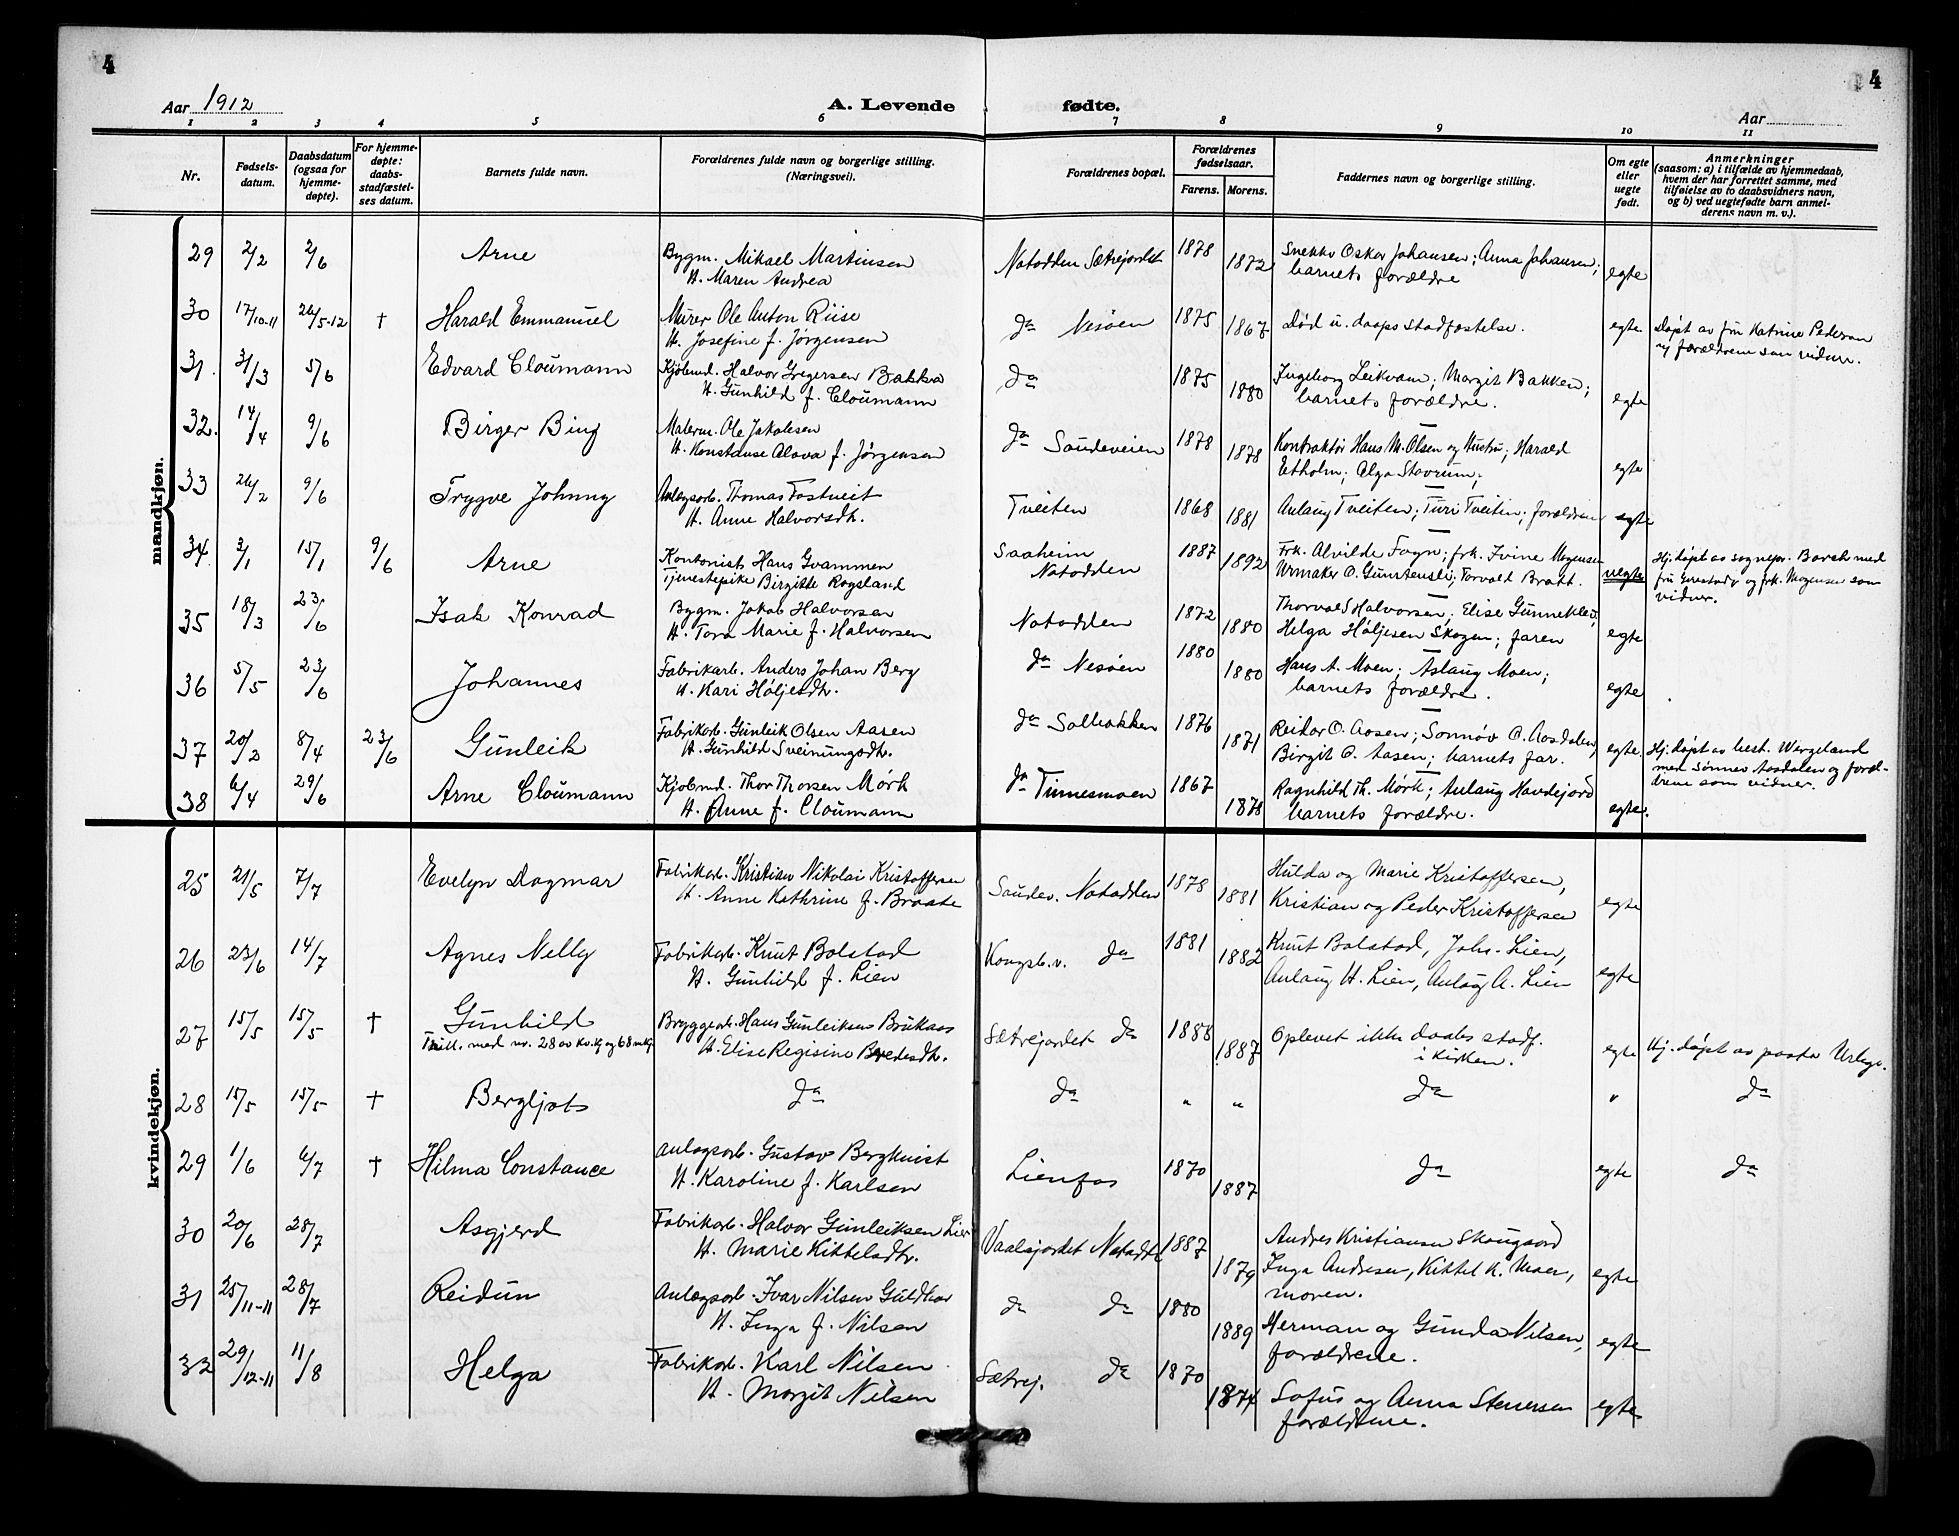 4
4
Aar 1912
A. Levende fødte.
Aar
1 2 3 4 5 6 7 8 9 10 11
Nr.
Fødsels-
datum.
Daabsdatum
(ogsaa for
hjemme-
døpte).
For hjemme-
døpte:
daabs-
stadfæstel-
ses datum.
Barnets fulde navn.
Forældrenes fulde navn og borgerlige stilling.
(Næringsvei).
Forældrenes bopæl.
Forældrenes
fødselsaar.
Farens. Morens.
Faddernes navn og borgerlige stilling.
Om egte
eller
uegte
født.
Anmerkninger
(saasom: a) i tilfælde av hjemmedaab,
hvem der har forrettet samme, med
tilføielse av to daabsvidners navn,
og b) ved uegtefødte barn anmel-
derens navn m. v.).
mandkjøn.
29 2/2 2/6 Arne Bygm. Mikael Martinsen Notodden Sætrejordet 1878 Snekker Oskar Johansen; Anna Johansen;
H. Maren Andrea 1872 barnets forældre egte
30 17/10-11 26/5-12 † Harald Emmanuel Murer Ole Anton Riise do Nesøen 1875 1867 Død u. daaps stadfæstelse. egte Døpt av fru Katrine Pedersen
H. Josefine f. Jørgensen og forældrene som vidner.
31. 31/3 5/6 Edvard Cloumann Kjøbmd. Halvor Gregersen Bakka do 1875 Ingeborg Leikvam; Margit Bakken;
H. Gunhild f. Cloumann 1880 barnets forældre. egte
32. 14/4 9/6 Birger Bing Malerm. Ole Jakobsen do Saudeveien 1878 Kontraktør Hans M. Olsen og Hustru; Harald
H. Konstanse Alava f. Jørgensen 1878 Etholm; Olga Stavrum; egte
33 26/2 9/6 Trygve Johnny Anlægsarb. Thomas Fostveit Tveiten 1868 Aslaug Tveiten; Turi Tveiten; forældrene egte
H. Anne Halvorsdtr. 1881
34. 3/1 15/1 9/6 Arne Kontorist Hans Gvammen Saaheim 1887 Frk. Alvilde Fogn; frk. Irine Mogensen Hj. døpt av sognepr. Barck med
Tjenestepike Birgitte Rogsland Notodden 1892 Urmaker O. Gunstensli; Torvald Bratt. uegte fru Grostady og frk. Mogensen som
vidner.
35 18/3 23/6 Isak Konrad Bygm. Jakob Halvorsen Notodden 1872 Thorvald Halvorsen; Elise Gunnekleiv;
H. Tora Marie f. Halvorsen 1880 Helga Høljesen Skogen; faren egte
36 5/5 23/6 Johannes Fabrikarb. Anders Johan Berg do Nesøen 1880 Hans A. Moen; Aslaug Moen;
H. Kari Høljesdtr. 1880 barnets forældre. egte
37 20/2 8/4 23/6 Gunleik Fabrikarb. Gunleik Olsen Aasen do Solbakken 1876 Reidar O. Aasen; Sonnøv O. Aasdalen,
H. Gunhild Sveinungsdtr. 1871 Birgit O. Aasen; barnets far. egte. Hj. døpt av best. Wergeland
med Sønnev Aasdalen og foræl-
drene som vidner.
38 6/4 29/6 Arne Cloumann Kjøbmd. Thor Thorsen Mørk do Tinnesmoen 1867 Ragnhild Th. Mørk; Aslaug Haudejord
H. Anne f. Cloumann 1878 barnets forældre. egte.
kvindekjøn.
25 21/5 7/7 Evelyn Dagmar Fabrikarb. Kristian Nikolai Kristoffersen Saudev. Notodden 1878 Hulda og Marie Kristoffersen,
H. Anne Kathrine f. Braate 1881 Kristian og Peder Kristoffersen egte
26 23/6 14/7 Agnes Nelly Fabrikarb. Knut Bolstad Kongsb.v. do 1881 Knut Bolstad, Johs. Lien,
H. Gunhild f. Lien 1882 Aslaug H. Lien, Aslaug A. Lien egte
27 15/5 15/5 † Gunhild Bryggearb. Hans Gunleiksen Brukaas Sætrejordet do 1888 Oplevet ikke daabs stadf.
Trill. med nr. 28 av kv.kj og 68 m.kj H. Elise Regisine Bredesdtr. 1887 i kirken. egte Hj. døpt av pastor
28 15/5 15/5 † Bergljot do do " " do " do
29 1/6 6/7 † Hilma Constance Anlægsarb. Gustav Bergkvist Lienfos 1870 do egte do
H. Karoline f. Karlsen 1887
30 20/6 28/7 Asgjerd Fabrikarb. Halvor Gunleiksen Lien Vaalajordet Notodden 1887 Andres Kristiansen Skougaard
H. Marie Kittelsdtr. 1879 Inga Andresen, Kittel K. Moen, egte
moren.
31 25/11-11 28/7 Reidun Anlægsarb. Ivar Nilsen Guldhav do do 1880
H. Inga f. Nilsen 1889 Herman og Gunda Nilsen, egte
forældrene.
32 29/12-11 11/8 Helga Fabrikarb. Karl Nilsen Sætrej. do 1870
H. Margit Nilsen 1874 Sofus og Anna Stenersen egte
forældrene.